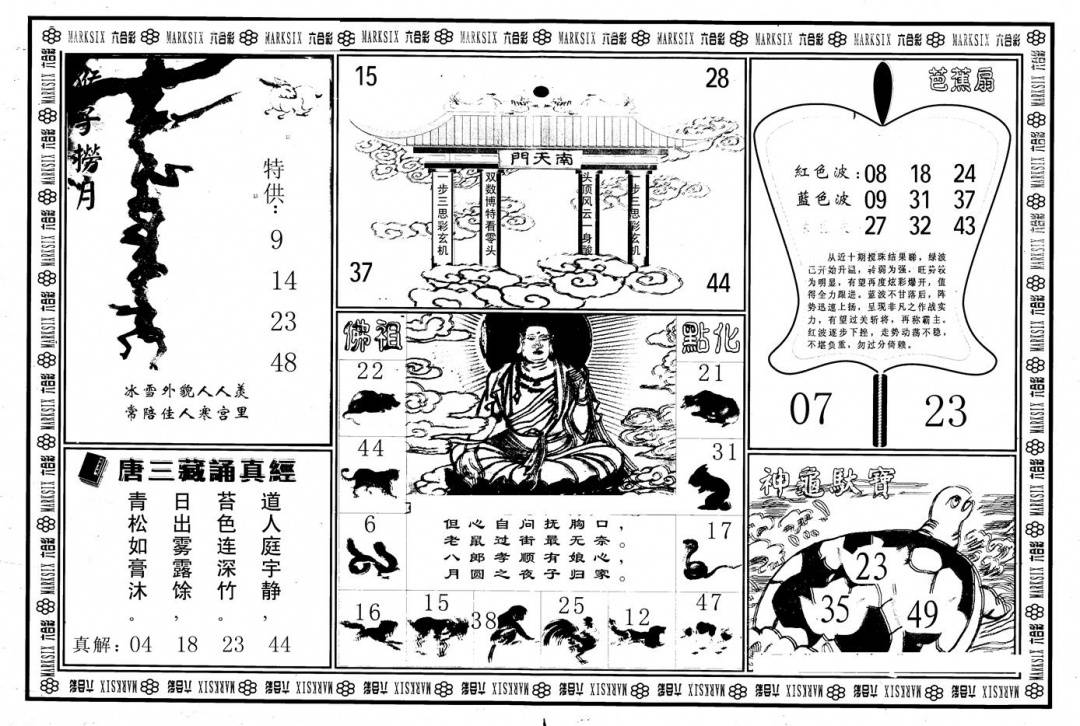 MARKSIX 六合彩 MARKSIX 六合彩 MARKSIX 六合彩 MARKSIX 六合彩 MARKSIX 六合彩 MARKSIX 六合彩 MARKSIX 六合彩 MARKSIX 六合彩 MARKSIX 六合彩 MARKSIX 六合彩
猴子撈月
特供：
9
14
23
48
冰雪外貌人人羡
常陪佳人寒宫里
唐三藏誦真經
道人庭宇静，
苔色连深竹。
日出雾露馀，
青松如膏沐。
真解：04 18 23 44
15
28
南天門
一步三思彩玄机
双数博特看零头
头顶风云一身酸
一步三思彩玄机
37
44
佛祖
點化
22
21
44
31
6
17
但心自问抚胸口，
老鼠过街最无奈。
八郎孝顺有娘心，
月圆之夜子归家。
16
15
38
25
12
47
芭蕉扇
紅色波：08 18 24
蓝色波 09 31 37
27 32 43
从近十期搅珠结果睇，绿波
已开始升温，转弱为强，旺势较
为明显，有望再度炫彩爆开，值
得全力跟进。蓝波不甘落后，阵
势迅速上扬，呈现非凡之作战实
力，有望过关斩将，再称霸主。
红波逐步下挫，走势动荡不稳，
不堪负重，勿过分倚赖。
07
23
神龜馱寶
23
35
49